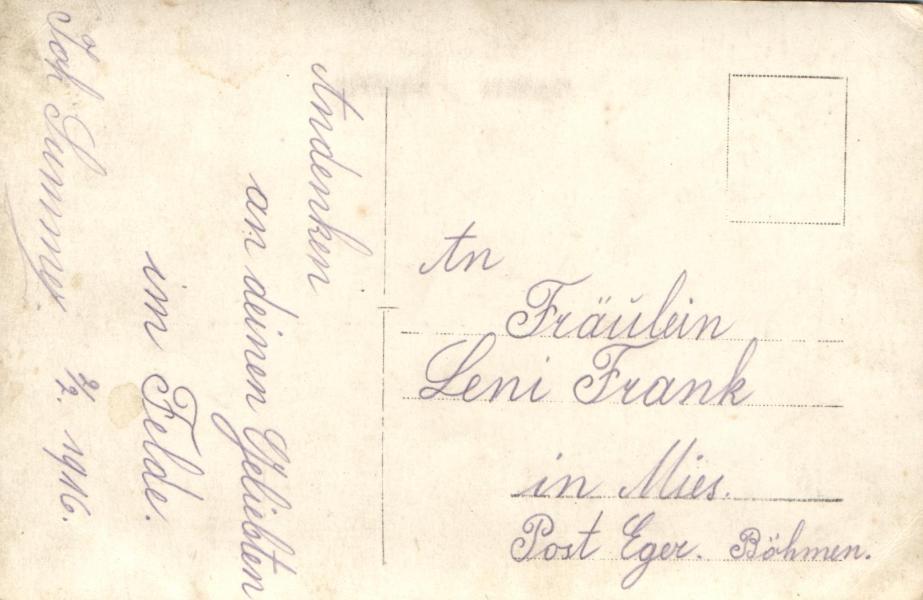 Andenken
an deinen Geliebten
im Felde.
1916.
An
Fräulein
Leni Frank
in Mies.
Post Eger. Böhmen.